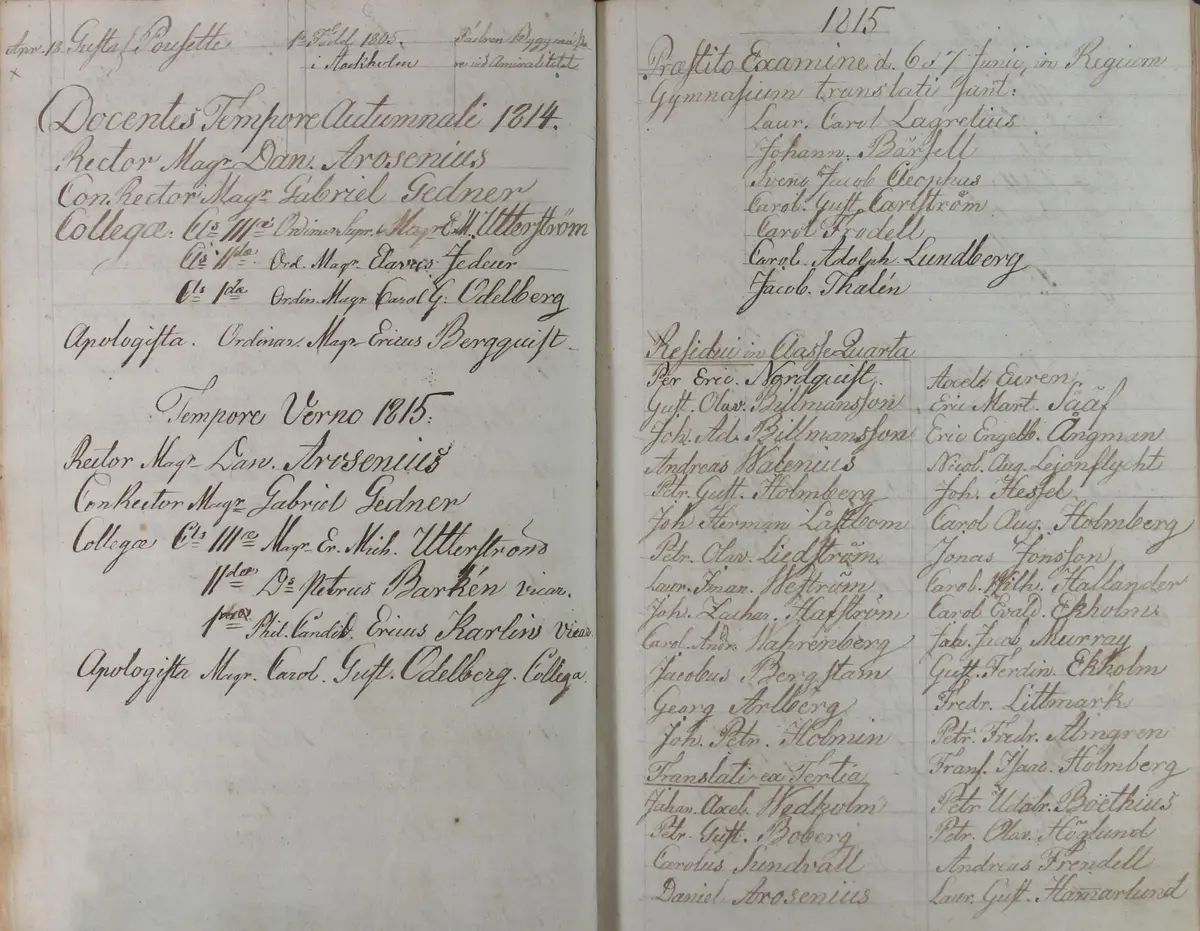 Apr. 18. Gustaf Pousette
Född 1805.
i Stockholm
Fadren Byggmästa
re vid Amiralitetet
Docentes Tempore Autumnali 1814.
Rector Magr Dan. Arosenius
Con.Rector Magr Gabriel Gedner
Collegæ. Cls IIIæ Ordinar. Magr E. M. Utterström
Cls IIdæ Ord. Magr
Cls 1æ Ordin. Magr Carol G. Odelberg
Apologista. Ordinar. Magr Ericus Bergquist
Tempore Verno 1815.
Rector Magr Dan. Arosenius
ConRector Magr Gabriel Gedner
Collegæ Cls IIIæ Magr. Er. Mich. Utterström
IIdæ Ds Petrus Barkén vicar.
Phil. Candid. Ericus Karlins Vicar
Apologista Magr. Carol. Gust. Odelberg. Collega
1815
Præstito Examine d. 6 & 7 Junii, in Regium
Gymnasium translati sunt:
Laur. Carol Lagrelius
Johann. Bärsell
Sveno Jacob Cleophas
Carol. Gust. Carlström
Carol Frodell
Carol. Adolph. Lundberg
Jacob. Thalén
Residui in Classe Quarta
Per Eric. Nordquist.
Gust. Olav. Billmansson
Joh. Ad. Billmansson
Andreas Walenius
Petr. Gust. Holmberg
Joh Herman Låstbom
Petr. Olav. Liedström
Laur. Jman. Weström
Joh. Zachar. Hafström
Carol. Andr. Wahrenberg
Jacobus Bergstam
Georg Arlberg
Joh. Petr. Holmin
Translati ex Tertia
Johan. Axel. Wedholm
Petr. Gust. Boberg
Carolus Sundvall
Daniel Arosenius
Axel Euren
Eric Mart. Sääf
Eric Engelb. Ångman
Nicol. Aug. Lejonflycht
Joh. Hessel
Carol Aug. Holmberg
Jonas Jonsson
Carol. Wilh. Hallander
Carol Evald. Ekholm
Joh. Jacob Murray
Gust. Ferdin. Ekholm
Fredr. Littmark
Petr. Fredr. Almgren
Frans. Isaac. Holmberg
Petr Udalr. Boëthius
Petr. Olav. Höglund
Andreas Frendell
Laur. Gust. Hamarlund